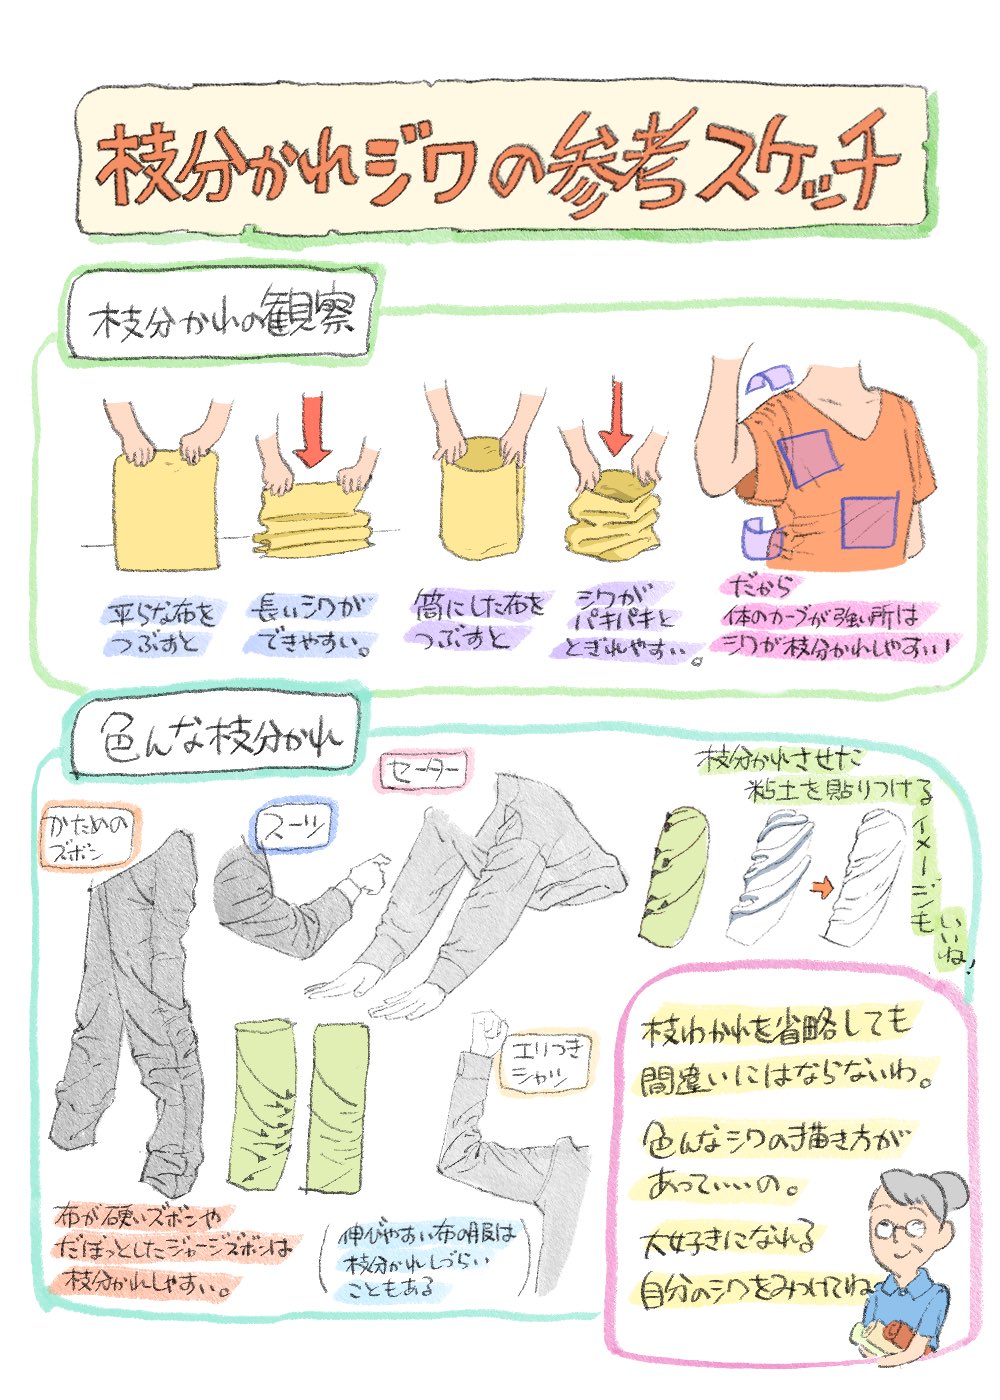 枝分かれジワの参考スケッチ
枝分かれの観察
平らな布を
つぶすと
長いシワが
できやすい。
筒にした布を
つぶすと
シワが
パキパキと
とぎれやすい。
だから
体のカーブが強い所は
シワが枝分かれしやすい!
色んな枝分かれ
かための
ズボン
スーツ
セーター
枝分かれさせた
粘土を貼りつける
イメージンも
いいね!
エリつき
シャツ
布が硬いズボンや
だぼっとしたジャージズボンは
枝分かれしやすい。
(伸びやすい布の服は
枝分かれしづらい
こともある)
枝わかれを省略しても
間違いにはならないわ。
色んなシワの描き方が
あっていいの。
大好きになれる
自分のシワをみつけてね